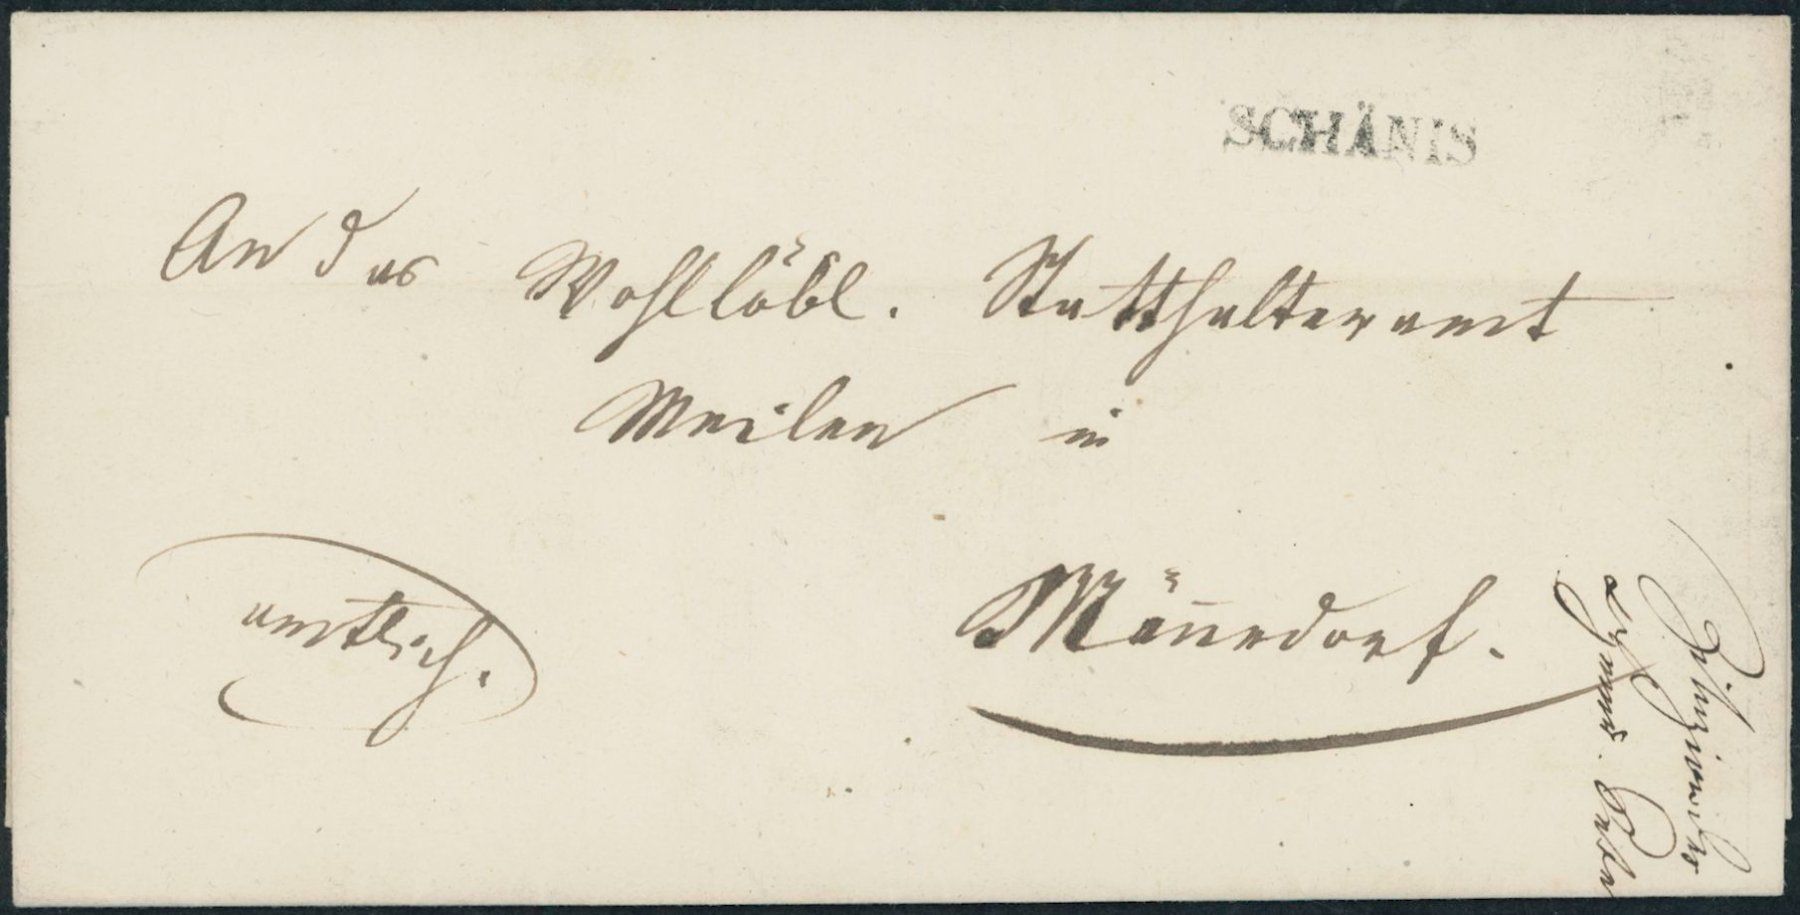 SCHÄNIS
An das Wohllöbl. Statthalteramt
Meilen in
Männedorf.
amtlich.